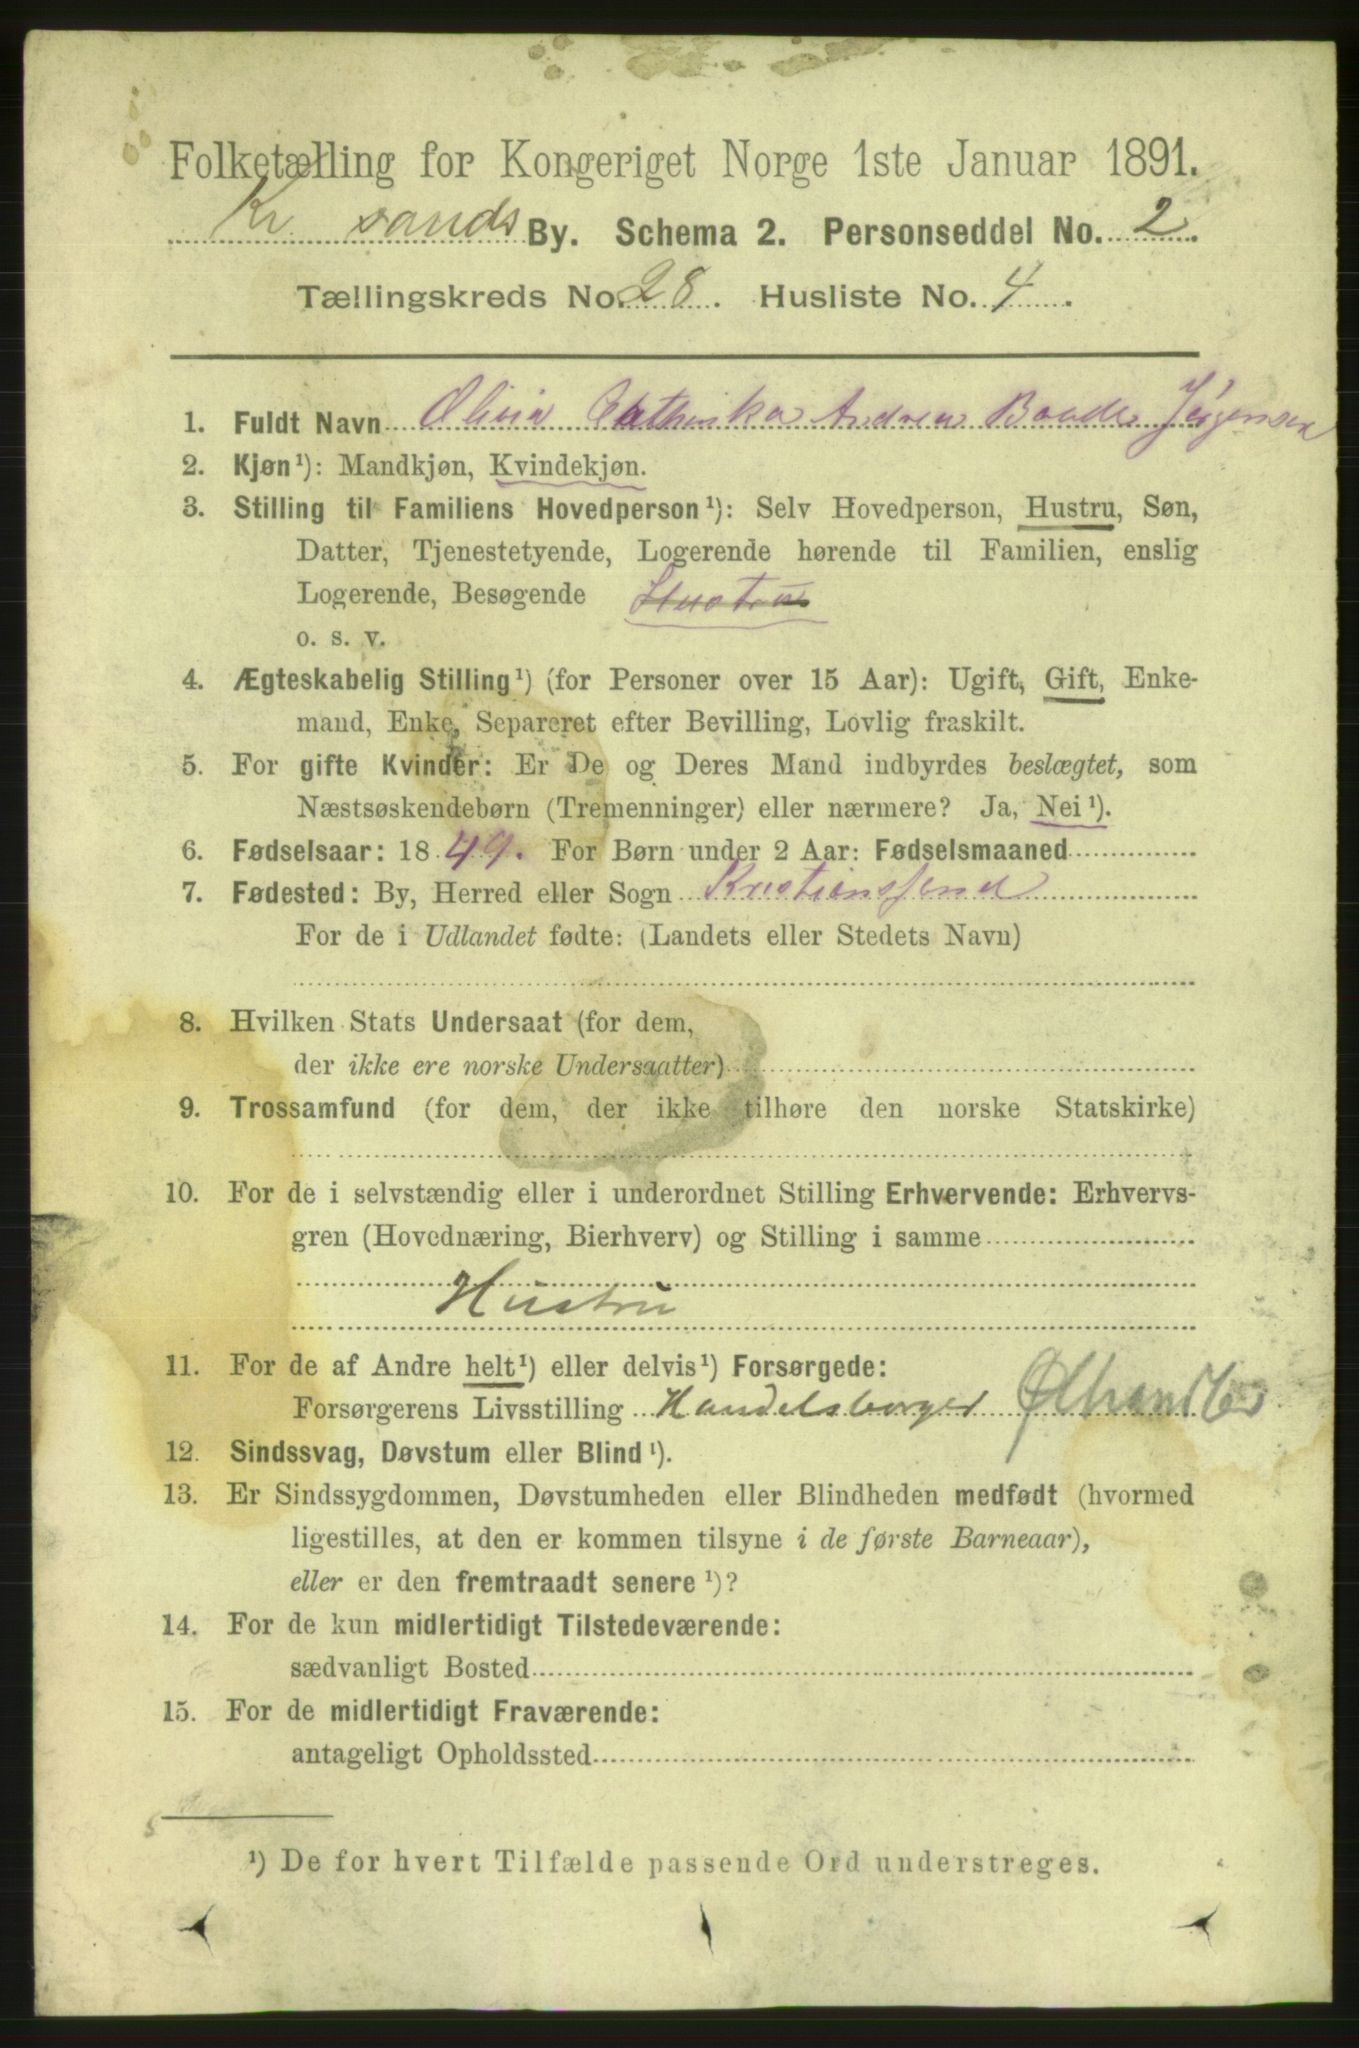 Folketælling for Kongeriget Norge 1ste Januar 1891.
Kr sands By. Schema 2. Personseddel No. 2.
Tællingskreds No. 28. Husliste No. 4.
1. Fuldt Navn Olivia Cathinka Andrea Baade Jørgensen
2. Kjøn ¹): Mandkjøn, Kvindekjøn.
3. Stilling til Familiens Hovedperson ¹): Selv Hovedperson, Hustru, Søn,
Datter, Tjenestetyende, Logerende hørende til Familien, enslig
Logerende, Besøgende Hustru
o. s. v.
4. Ægteskabelig Stilling ¹) (for Personer over 15 Aar): Ugift, Gift, Enke-
mand, Enke, Separeret efter Bevilling, Lovlig fraskilt.
5. For gifte Kvinder: Er De og Deres Mand indbyrdes beslægtet, som
Næstsøskendebørn (Tremenninger) eller nærmere? Ja, Nei ¹).
6. Fødselsaar: 1849. For Børn under 2 Aar: Fødselsmaaned
7. Fødested: By, Herred eller Sogn Kristiansand
For de i Udlandet fødte: (Landets eller Stedets Navn)
8. Hvilken Stats Undersaat (for dem,
der ikke ere norske Undersaatter)
9. Trossamfund (for dem, der ikke tilhøre den norske Statskirke)
10. For de i selvstændig eller i underordnet Stilling Erhvervende: Erhvervs-
gren (Hovednæring, Bierhverv) og Stilling i samme
Hustru
11. For de af Andre helt ¹) eller delvis ¹) Forsørgede:
Forsørgerens Livsstilling Handelsborger
12. Sindssvag, Døvstum eller Blind ¹).
13. Er Sindssygdommen, Døvstumheden eller Blindheden medfødt (hvormed
ligestilles, at den er kommen tilsyne i de første Barneaar),
eller er den fremtraadt senere ¹)?
14. For de kun midlertidigt Tilstedeværende:
sædvanligt Bosted
15. For de midlertidigt Fraværende:
antageligt Opholdssted
¹) De for hvert Tilfælde passende Ord understreges.